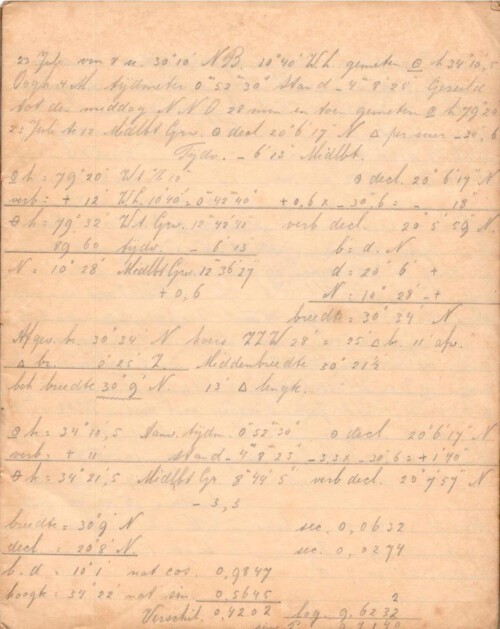 23 July vm 8 u. 30° 10' N.B. 10° 40' W.L. gemeten ⊙ h 34° 10,5
Oogh 4 M. tijdmeter 0 52 30 Stand - 4 8 25 Gezeild
tot den middag N.N.O 28 min en toen gemeten ⊙ h 79° 20'
23 Julie te 12 Midlbt Grw. ⊙ decl 20° 6' 17" N Δ per uur - 30,6
Tijdv. - 6 13 Midlbt.
⊙ h = 79° 20' ⊙ decl. 20° 6' 17" N
verb = + 12 W.L. 10° 40' = 0 42 40 + 0,6 x - 30,6 = - 18
⊖ h = 79° 32' W.t. Grw. 12 42 40 verb decl. 20° 5' 59" N
89 60 tijdv. - 6 13 b = d. N
N = 10° 28' Midlbt Grw. 12 36 27 d = 20° 6' +
+ 0,6 N = 10° 28' +
breedte = 30° 34' N.
Afgev. b. 30° 34' N koers Z.Z.W 28' = 25' Δ b. 11' afw.
Δ br. 0° 25' Z Middenbreedte 30° 21'
bek breedte 30° 9' N. 13' Δ lengte.
⊙ h = 34° 10,5 Aanw. tijdm. 0 52 30 ⊙ decl. 20° 6' 17" N
verb = + 11 stand - 4 8 25 - 3,3 x - 30,6 = + 1' 40"
⊖ h = 34° 21,5 Midlbt Gr 8 44 5 verb decl. 20° 7' 57" N
- 3,3
breedte = 30° 9' N sec. 0,0632
decl = 20° 8' N. sec. 0,0274
b. d = 10° 1' nat cos. 0,9847
hoogte = 34° 22' nat sin. 0,5645 2
Verschil. 0,4202 log. 9,6232